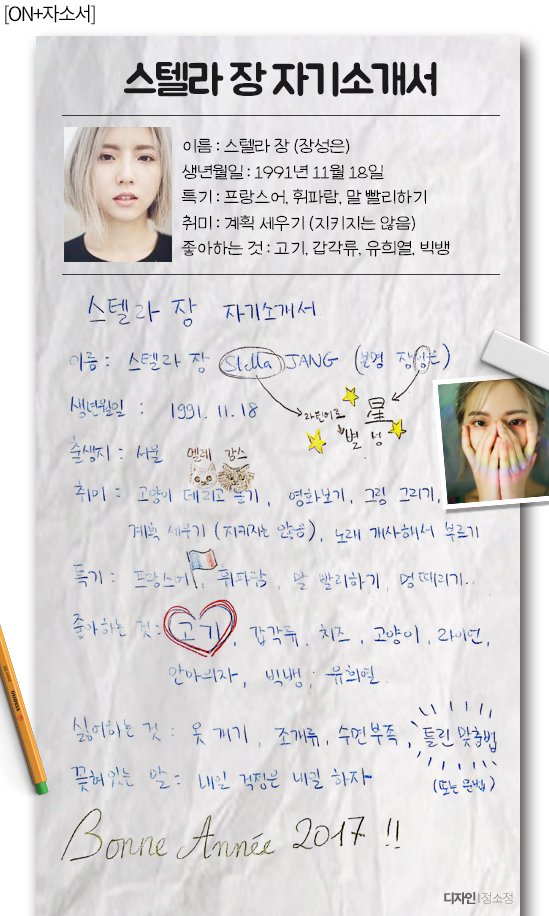 [ON+자소서]
스텔라 장 자기소개서
이름 : 스텔라 장 (장성은)
생년월일 : 1991년 11월 18일
특기 : 프랑스어, 휘파람, 말 빨리하기
취미 : 계획 세우기 (지키지는 않음)
좋아하는 것 : 고기, 갑각류, 유희열, 빅뱅
스텔라 장 자기소개서
이름 : 스텔라 장 Stella JANG (본명 장성은)
생년월일 : 1991. 11. 18
라틴어로 별
星 성
출생지 : 서울
멜레 강스
취미 : 고양이 데리고 놀기, 영화보기, 그림 그리기,
계획 세우기 (지키지는 않음), 노래 개사해서 부르기
특기 : 프랑스어, 휘파람, 말 빨리하기, 멍때리기..
좋아하는 것 : 고기, 갑각류, 치즈, 고양이, 라이언,
안마의자, 빅뱅, 유희열
싫어하는 것 : 옷 개기, 조개류, 수면부족, 틀린 맞춤법
(또는 문법)
꽂혀있는 말 : 내일 걱정은 내일 하자
Bonne Année 2017 !!
디자인 | 정소정